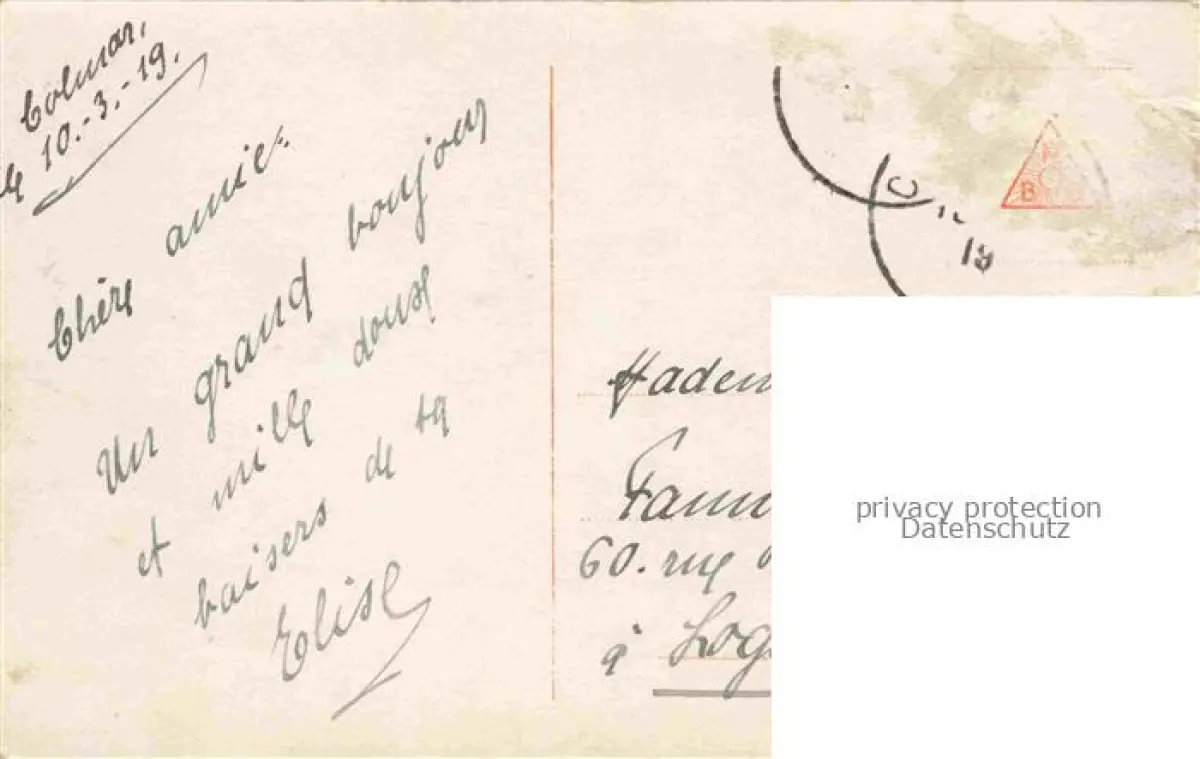 Colmar,
le 10.-3.-19.
Chère amie.
Un grand bonjour
et mille douse
baisers de ta
Elise
60. rue
à
privacy protection
Datenschutz